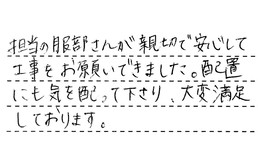 担当の服部さんが親切で安心して
工事をお願いできました。配置
にも気を配って下さり、大変満足
しております。